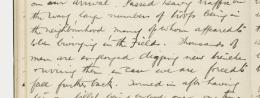 on our arrival. Passed heavy traffic on
the way, large numbers of troops being in
the neighbourhood many of whom appeared to
be living in the fields. Thousands of
men are employed digging new trenches
running them in case we are forced to
fall further back. Turned in after having